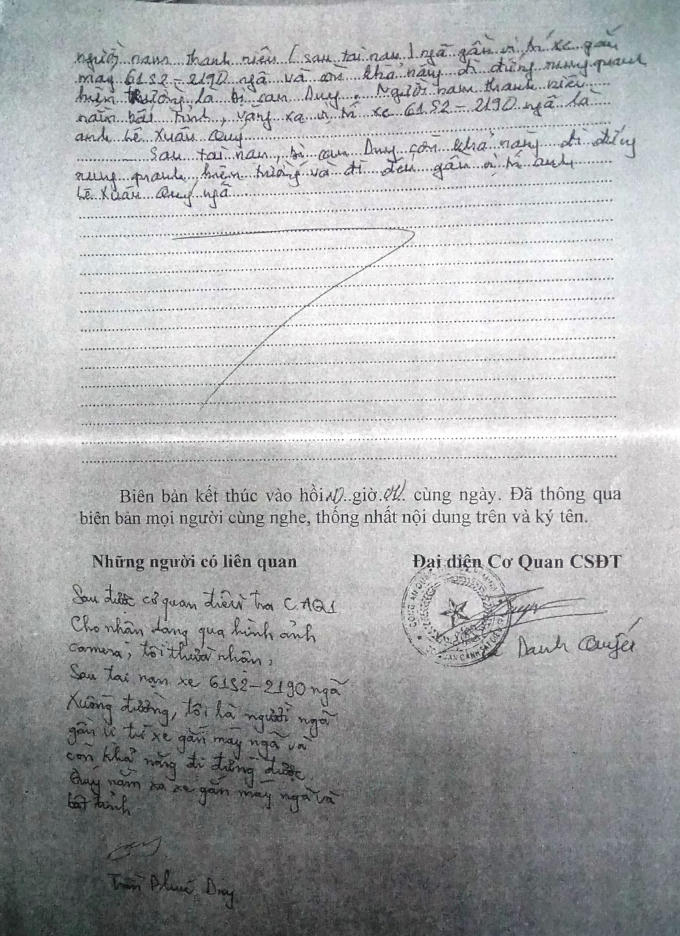 người nam thanh niên (sau tai nạn) ngã gần vị trí xe gắn
máy 61S2-2190 ngã và còn khả năng đi đứng xung quanh
hiện trường là bị can Duy. Người nam thanh niên
nằm bất tỉnh, văng xa vị trí xe 61S2-2190 ngã là
anh Lê Xuân Quy
Sau tai nạn, bị can Duy còn khả năng đi đứng
xung quanh hiện trường và đi đến gần vị trí anh
Lê Xuân Quý ngã
Biên bản kết thúc vào hồi giờ cùng ngày. Đã thông qua
biên bản mọi người cùng nghe, thống nhất nội dung trên và ký tên.
Những người có liên quan
Sau được cơ quan điều tra CAQ1
Cho nhận dạng qua hình ảnh
camera, tôi thừa nhận,
Sau tai nạn xe 61S2-2190 ngã
Xuống đường, tôi là người ngã
gần vị trí xe gắn máy ngã và
còn khả năng đi đứng được
Quý nằm xa xe gắn máy ngã và
bất tỉnh
Trần Phúc Duy
Đại diện Cơ Quan CSĐT
Danh Quyết